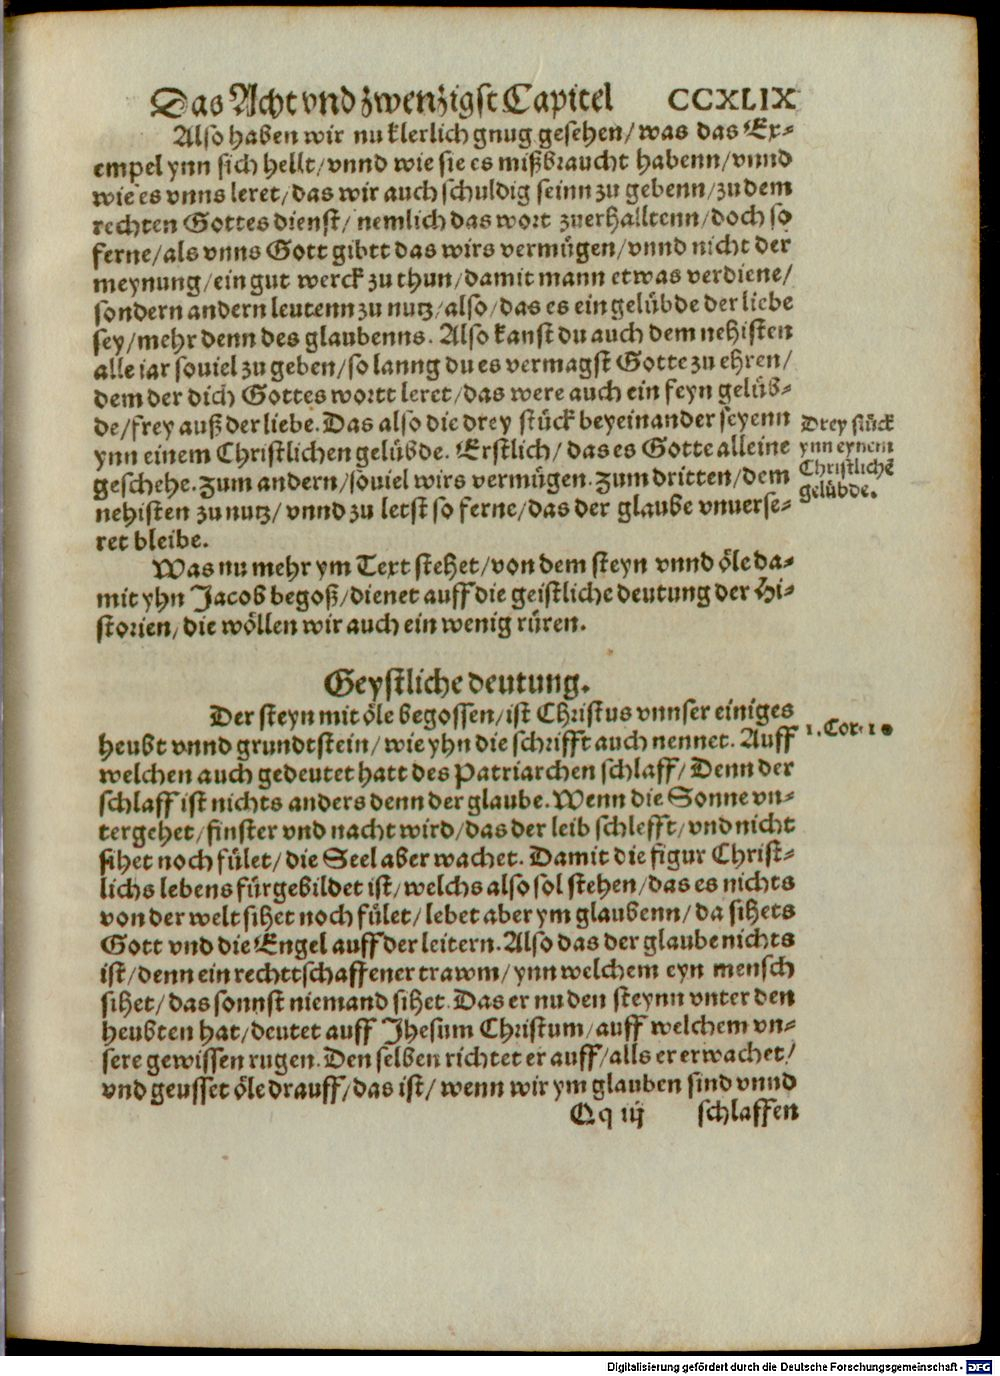 Das Acht vnd zwenzigst Capitel CCXLIX
Also haben wir nu klerlich gnug gesehen/was das Ex-
empel ynn sich hellt/vnnd wie sie es mißbraucht habenn/vnnd
wie es vnns leret/das wir auch schuldig seinn zu gebenn/zu dem
rechten Gottes dienst/nemlich das wort zuerhalltenn/doch so
ferne/als vnns Gott gibtt das wirs vermügen/vnnd nicht der
meynung/ein gut werck zu thun/damit mann etwas verdiene/
sondern andern leutenn zu nutz/also/das es ein gelübde der liebe
sey/mehr denn des glaubenns. Also kanst du auch dem nehisten
alle iar souiel zu geben/so lanng du es vermagst Gotte zu ehren/
dem der dich Gottes wortt leret/das were auch ein feyn gelüb-
de/frey auß der liebe. Das also die drey stück beyeinander seyenn
ynn einem Christlichen gelübde. Erstlich/das es Gotte alleine
geschehe. Zum andern/souiel wirs vermügen. Zum dritten/dem
nehisten zu nutz/vnnd zu letst so ferne/das der glaube vnuerse-
ret bleibe.
Drey stück
ynn eynem
Christlichē
gelübde.
Was nu mehr ym Text stehet/von dem steyn vnnd öle da-
mit yhn Jacob begoß/dienet auff die geistliche deutung der Hi-
storien/die wöllen wir auch ein wenig rüren.
Geystliche deutung.
Der steyn mit öle begossen/ist Christus vnnser einiges
heubt vnnd grundtstein/wie yhn die schrifft auch nennet. Auff
1. Cor. 10
welchen auch gedeutet hatt des Patriarchen schlaff/Denn der
schlaff ist nichts anders denn der glaube. Wenn die Sonne vn-
tergehet/finster vnd nacht wird/das der leib schlefft/vnd nicht
sihet noch fület/die Seel aber wachet. Damit die figur Christ-
lichs lebens fürgebildet ist/welchs also sol stehen/das es nichts
von der welt sihet noch fület/lebet aber ym glaubenn/da sihets
Gott vnd die Engel auff der leitern. Also das der glaube nichts
ist/denn ein rechttschaffener trawm/ynn welchem eyn mensch
sihet/das sonnst niemand sihet. Das er nu den steynn vnter den
heubten hat/deutet auff Jhesum Christum/auff welchem vn-
sere gewissen rugen. Den selben richtet er auff/alls er erwachet/
vnd geusset öle drauff/das ist/wenn wir ym glauben sind vnnd
Qq iij schlaffen
Digitalisierung gefördert durch die Deutsche Forschungsgemeinschaft - DFG